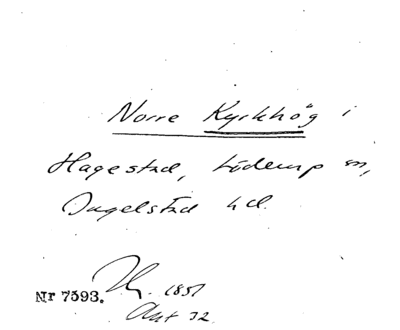 Norre Kyrkhög i
Hagestad, Löderup sn,
Ingelstad hd.
Nr 7593.
1851
Ant 32